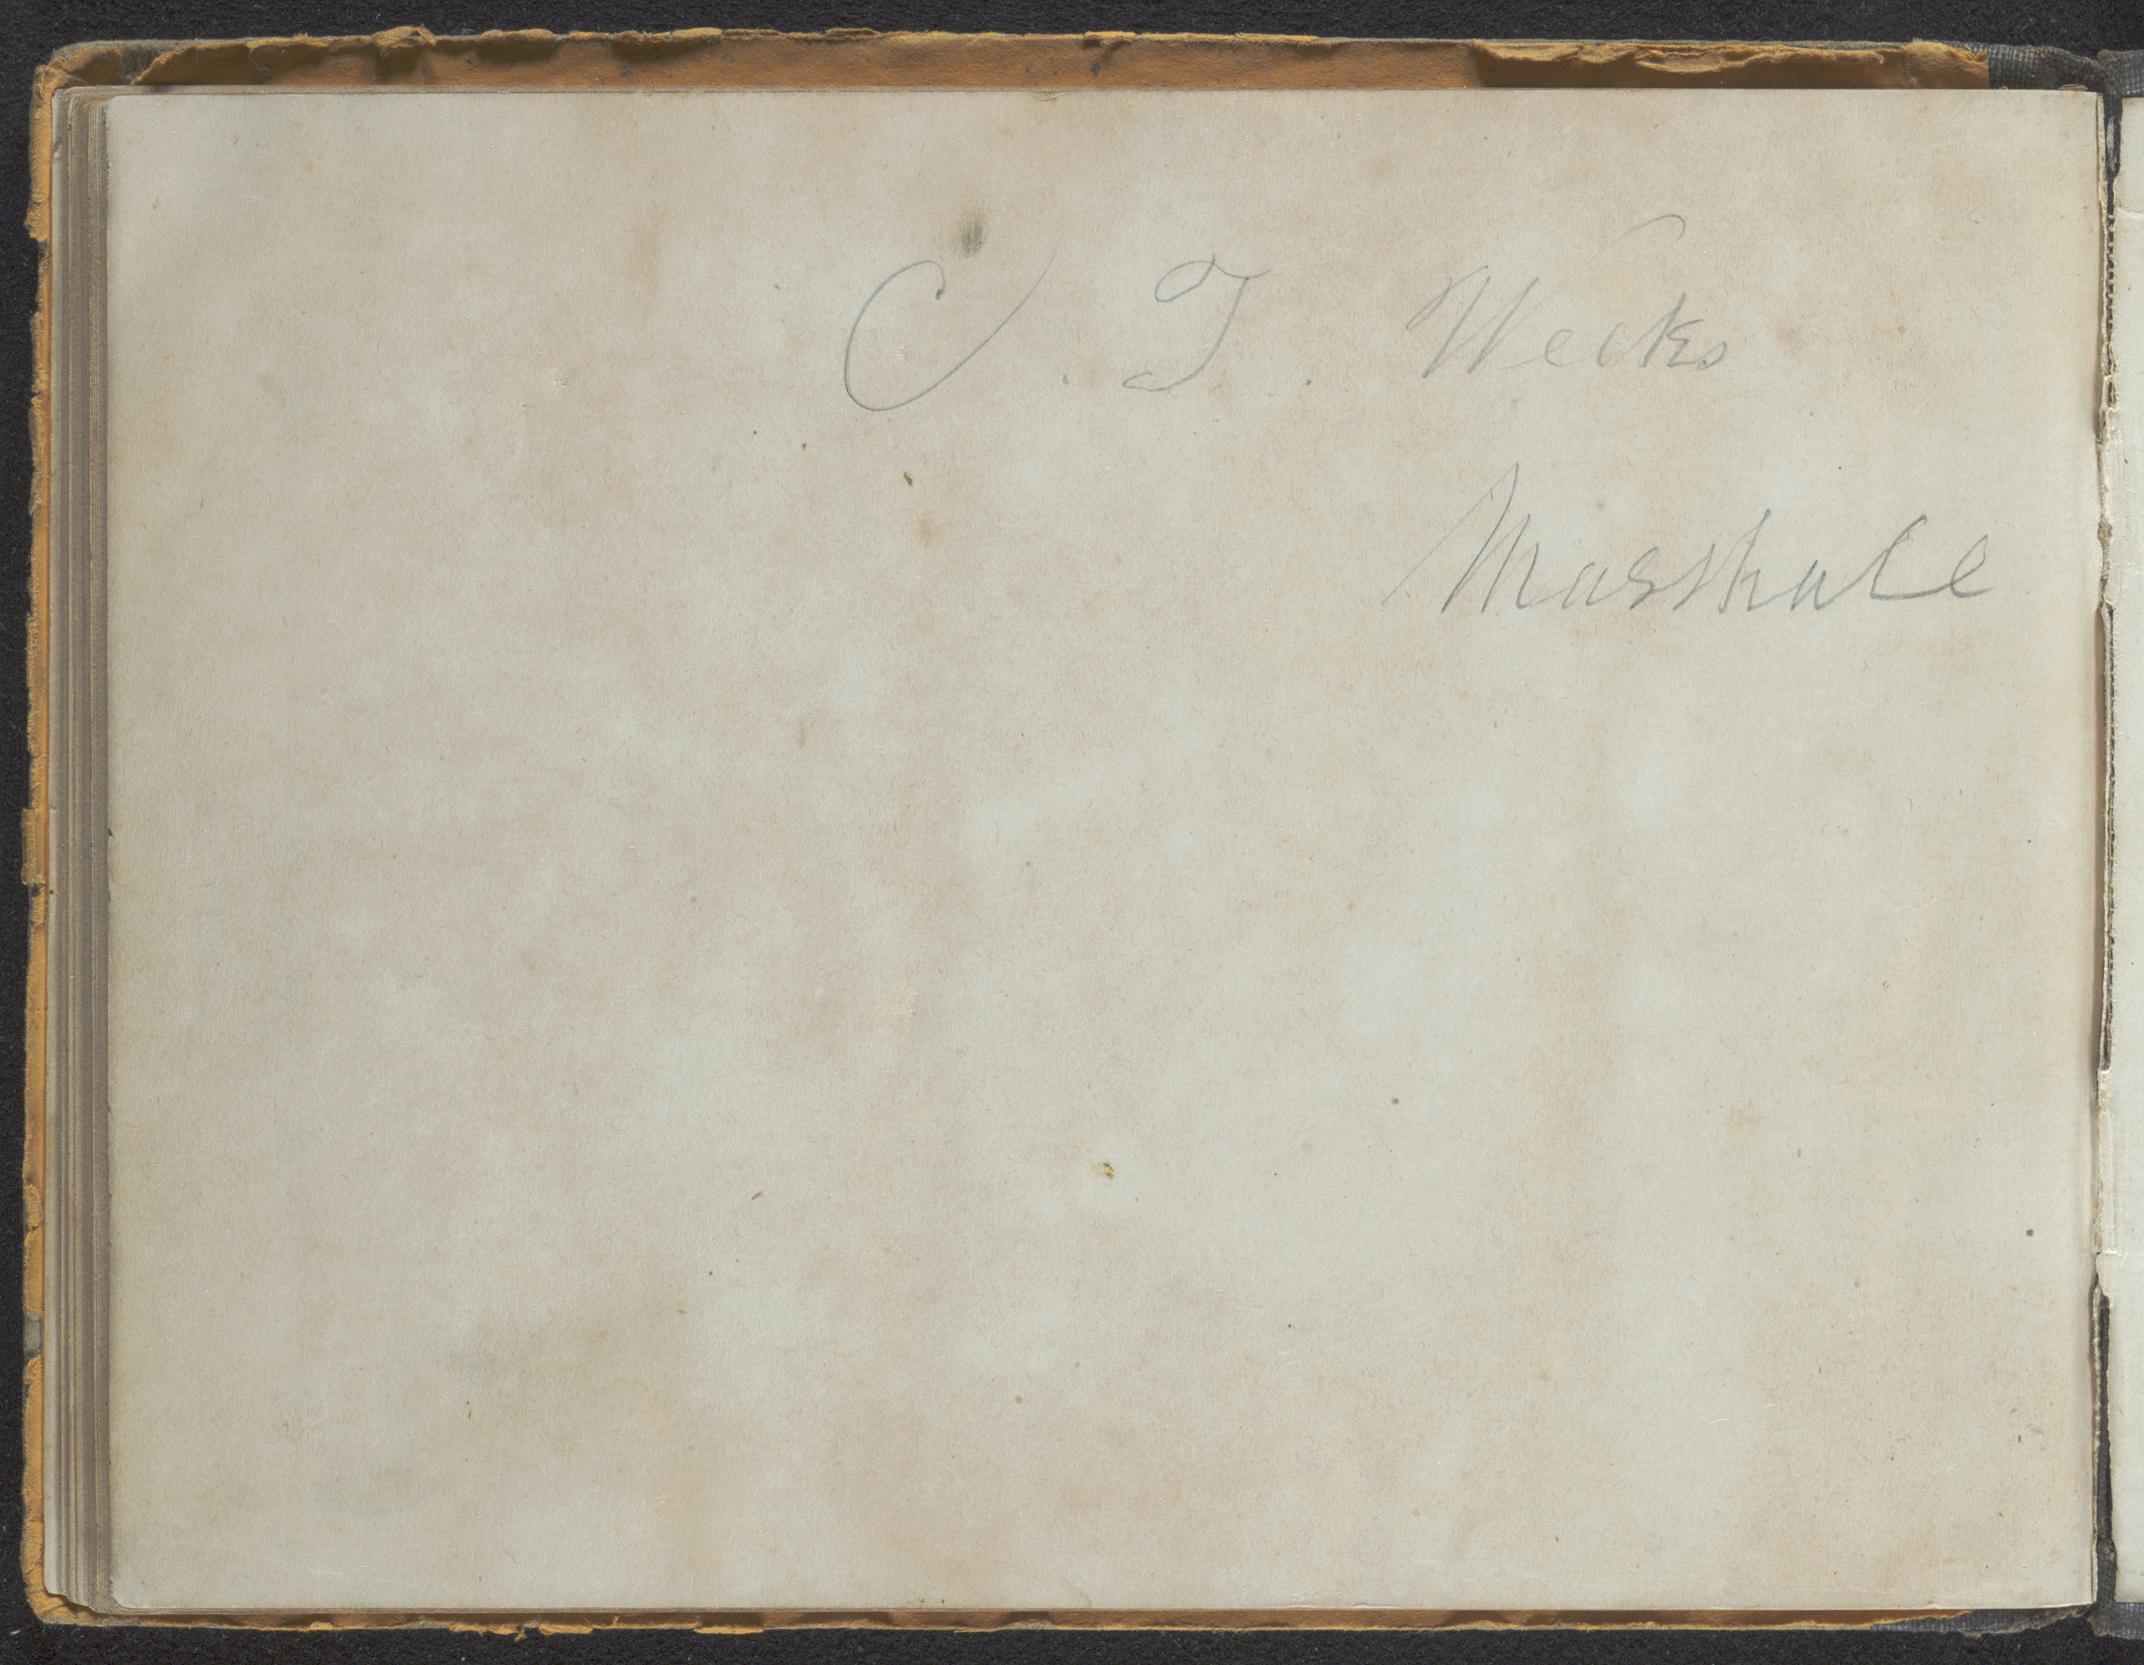 C. T. Weeks
Marshall